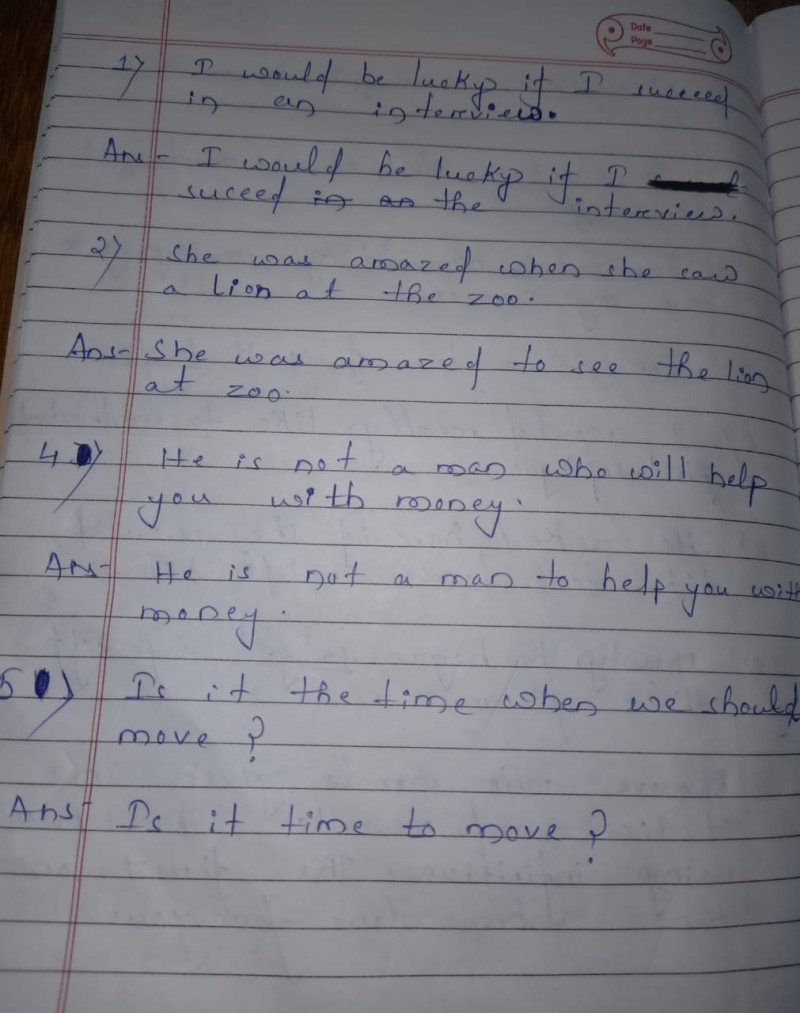 Date
Page
1) I would be lucky if I succeed
in an interview.
Ans- I would be lucky if I
suceed in an the interview.
2) She was amazed when she saw
a lion at the zoo.
Ans- She was amazed to see the lion
at zoo.
4) He is not a man who will help
you with money.
Ans- He is not a man to help you with
money.
5) Is it the time when we should
move ?
Ans- Is it time to move ?